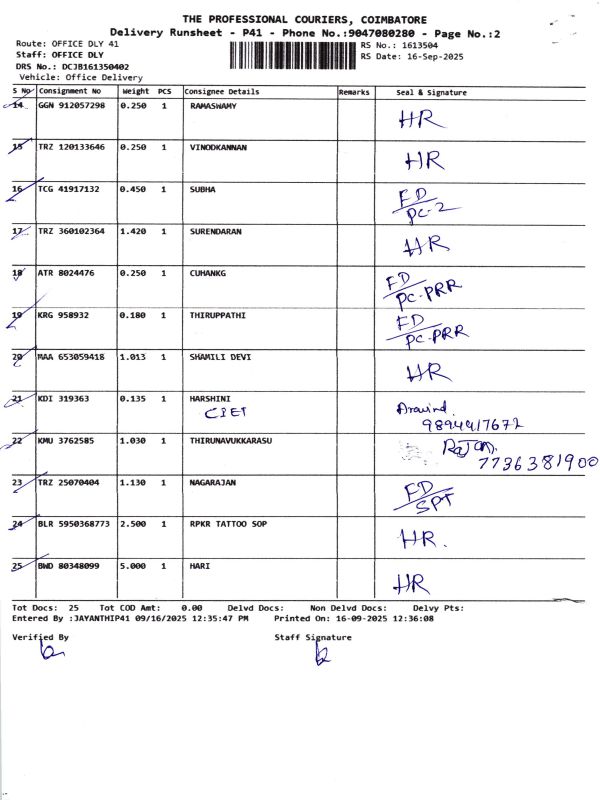 THE PROFESSIONAL COURIERS, COIMBATORE
Delivery Runsheet - P41 - Phone No.:9047080280 - Page No.:2
Route: OFFICE DLY 41
Staff: OFFICE DLY
DRS No.: DCJB161350402
Vehicle: Office Delivery
RS No.: 1613504
RS Date: 16-Sep-2025
S No Consignment No Weight PCS Consignee Details Remarks Seal & Signature
14 GGN 912057298 0.250 1 RAMASWAMY HR
15 TRZ 120133646 0.250 1 VINODKANNAN HR
16 TCG 41917132 0.450 1 SUBHA FD
PC-2
17 TRZ 360102364 1.420 1 SURENDARAN HR
18 ATR 8024476 0.250 1 CUHANKG FD
PC-PRR
19 KRG 958932 0.180 1 THIRUPPATHI FD
PC-PRR
20 MAA 653059418 1.013 1 SHAMILI DEVI HR
21 KDI 319363 0.135 1 HARSHINI Aravind
CIET 9894417672
22 KMU 3762585 1.030 1 THIRUNAVUKKARASU
7736381900
23 TRZ 25070404 1.130 1 NAGARAJAN FD
SPT
24 BLR 5950368773 2.500 1 RPKR TATTOO SOP HR.
25 BWD 80348099 5.000 1 HARI HR
Tot Docs: 25 Tot COD Amt: 0.00 Delvd Docs: Non Delvd Docs: Delvy Pts:
Entered By :JAYANTHIP41 09/16/2025 12:35:47 PM Printed On: 16-09-2025 12:36:08
Verified By Staff Signature